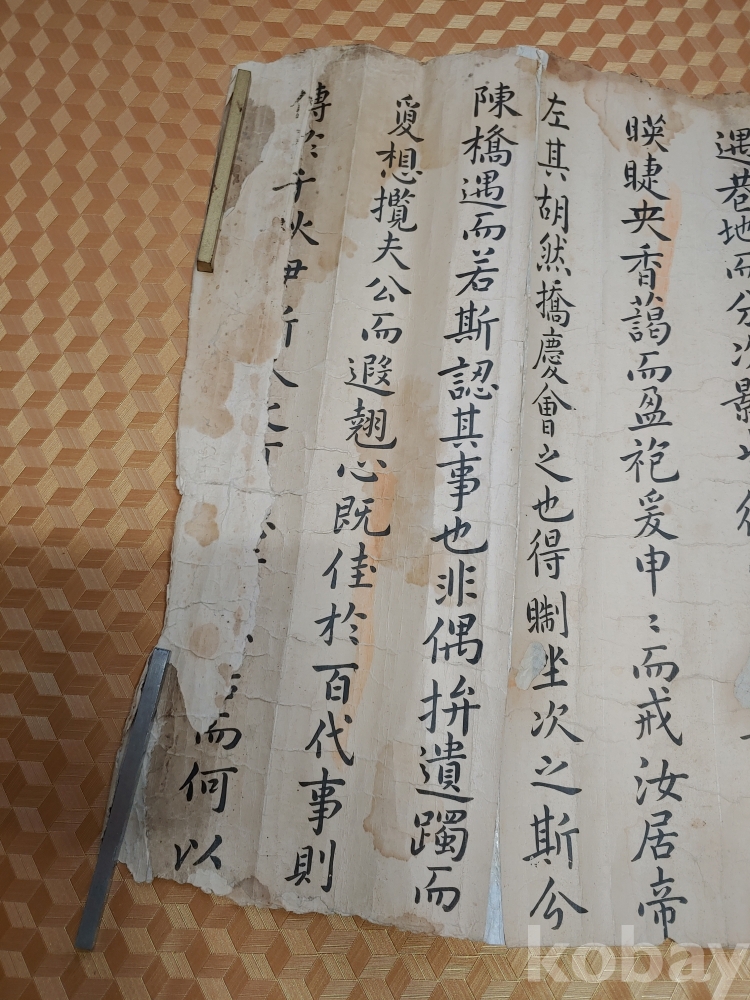 遇巷地而分次影
暎睫央香藹而盈袍爰申〻而戒汝居帝
左其胡然撟慶會之也得瞓坐次之斯分
陳橋遇而若斯認其事也非偶拚遺躅而
爰想攬夫公而遐翹心旣佳於百代事則
傳於千秋
而何以
kobay